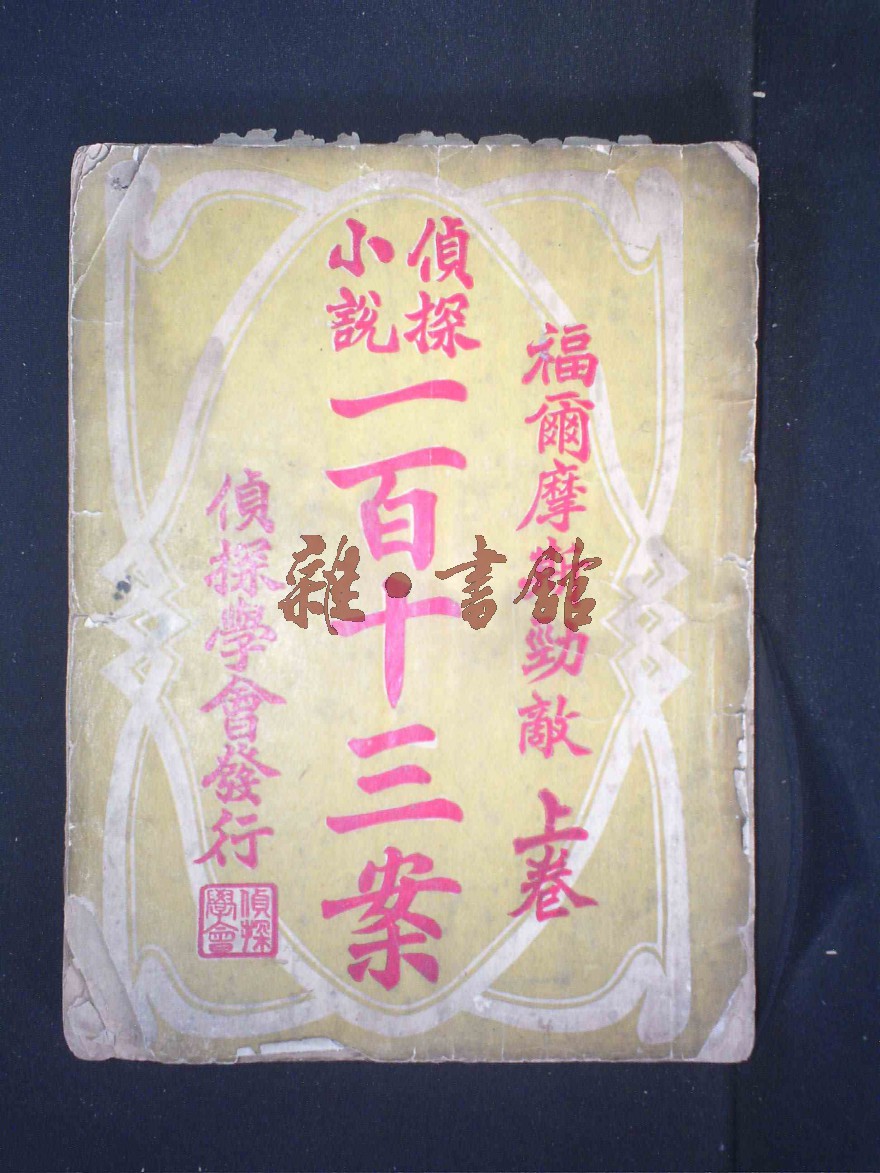 福爾摩斯勁敵 上卷
偵探
小說
一百十三案
偵探學會發行
偵探
學會
雜·書館